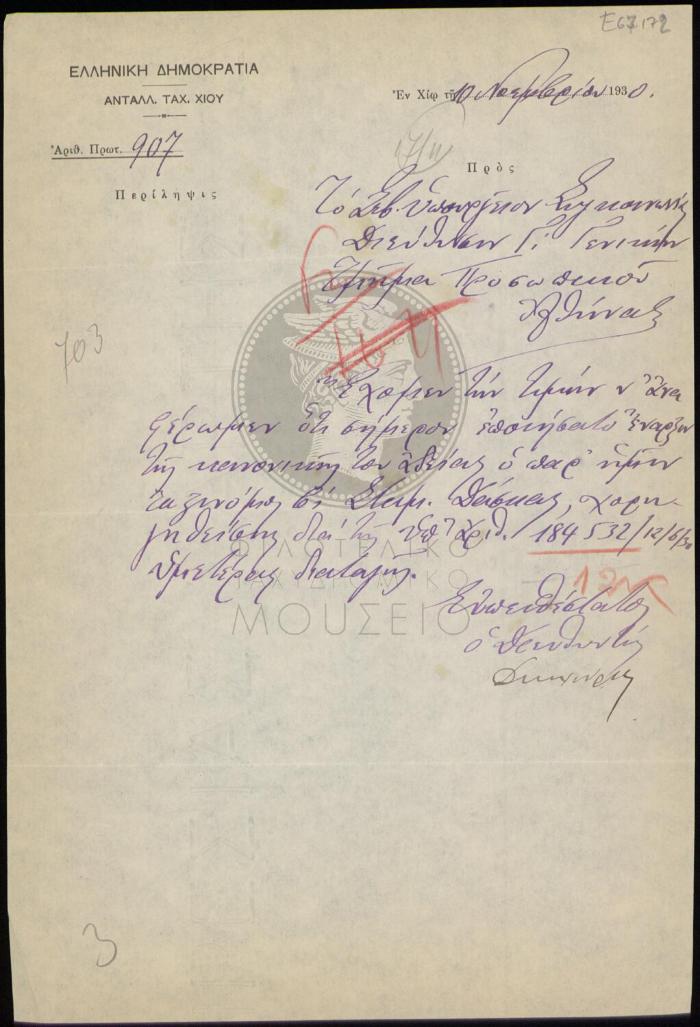 Ε67172
ΕΛΛΗΝΙΚΗ ΔΗΜΟΚΡΑΤΙΑ
ΑΝΤΑΛΛ. ΤΑΧ. ΧΙΟΥ
Ἐν Χίῳ τῇ 10 Νοεμβρίου 1930.
Ἀριθ. Πρωτ. 907
17/11
Πρὸς
Περίληψις
Τὸ Σεβ. Ὑπουργεῖον Συγκοινωνίας
Διεύθυνσιν Γ! Γενικὴν
Τμῆμα Προσωπικοῦ
Ἀθήνας
703
Ἔχομεν τὴν τιμὴν ν' ἀνα
φέρωμεν ὅτι σήμερον ἐποιήσατο ἔναρξιν
τῆς κανονικῆς του ἀδείας ὁ παρ' ἡμῖν
ταξινόμος Σταμ. χορη
γηθείσης διὰ τῆς ὑπ' ἀριθ. 184532/12/6/30
ὑμετέρας διαταγῆς.
ΦΙΛΟΤΕΛΙΚΟ
ΤΑΧΥΔΡΟΜΙΚΟ
ΜΟΥΣΕΙΟ
Εὐπειθέστατος
ὁ Διευθυντὴς
3